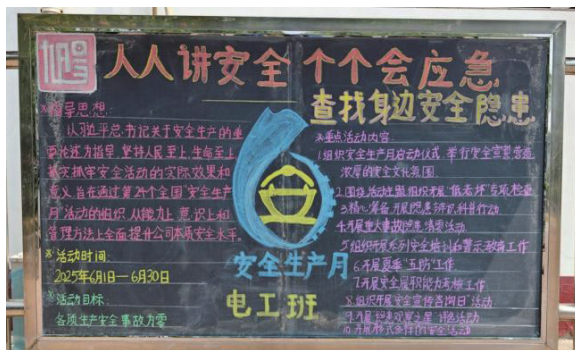 人人讲安全 个个会应急
查找身边安全隐患
※指导思想:
以习近平总书记关于安全生产的重
要论述为指导,坚持人民至上,生命至上
抓实抓牢安全活动的实际效果和
意义,旨在通过第24个全国"安全生产
月"活动的组织,从能力上,意识上和
管理方法上全面提升公司本质安全水平。
※活动时间:
2025年6月1日—6月30日
※活动目标:
各项生产安全事故为零
安全生产月
电工班
※重点活动内容
1.组织安全生产月启动仪式,举行安全宣誓营造
浓厚的安全文化氛围
2.围绕活动主题组织开展"低老坏"专项检查
3.精心筹备开展隐患辨识科普行动
4.开展重大事故隐患清零活动
5.组织开展系列安全培训和警示教育工作
6.开展夏季"五防"工作
7.开展安全履职能力考核工作
8.组织开展"安全宣传咨询日"活动
9.开展隐患观察之星评选活动
10.开展相关合作方安全活动